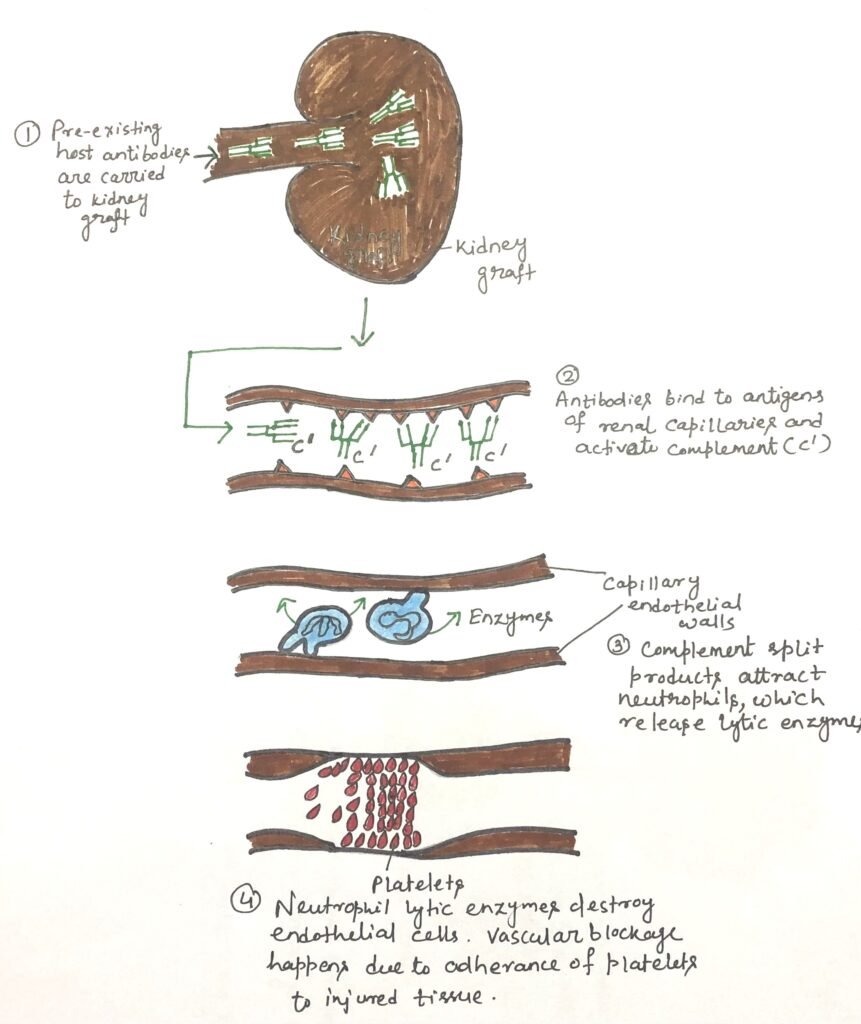 ① Pre-existing
host antibodies
are carried
to kidney
graft
Kidney
Kidney
graft
②
Antibodies bind to antigens
of renal capillaries and
activate complement (C')
C'
C'
C'
C'
Capillary
endothelial
walls
Enzymes
③ Complement split
products attract
neutrophils, which
release lytic enzymes
Platelets
④ Neutrophil lytic enzymes destroy
endothelial cells. Vascular blockage
happens due to adherance of platelets
to injured tissue.